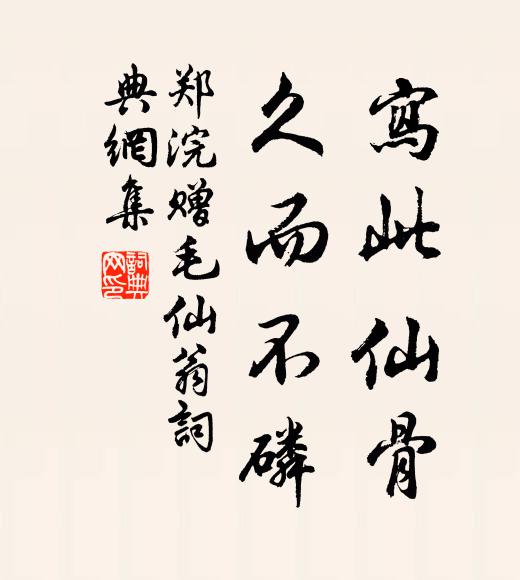 寫此仙骨
久而不磷
郑浣赠毛仙翁詞
典網集
詞典网印